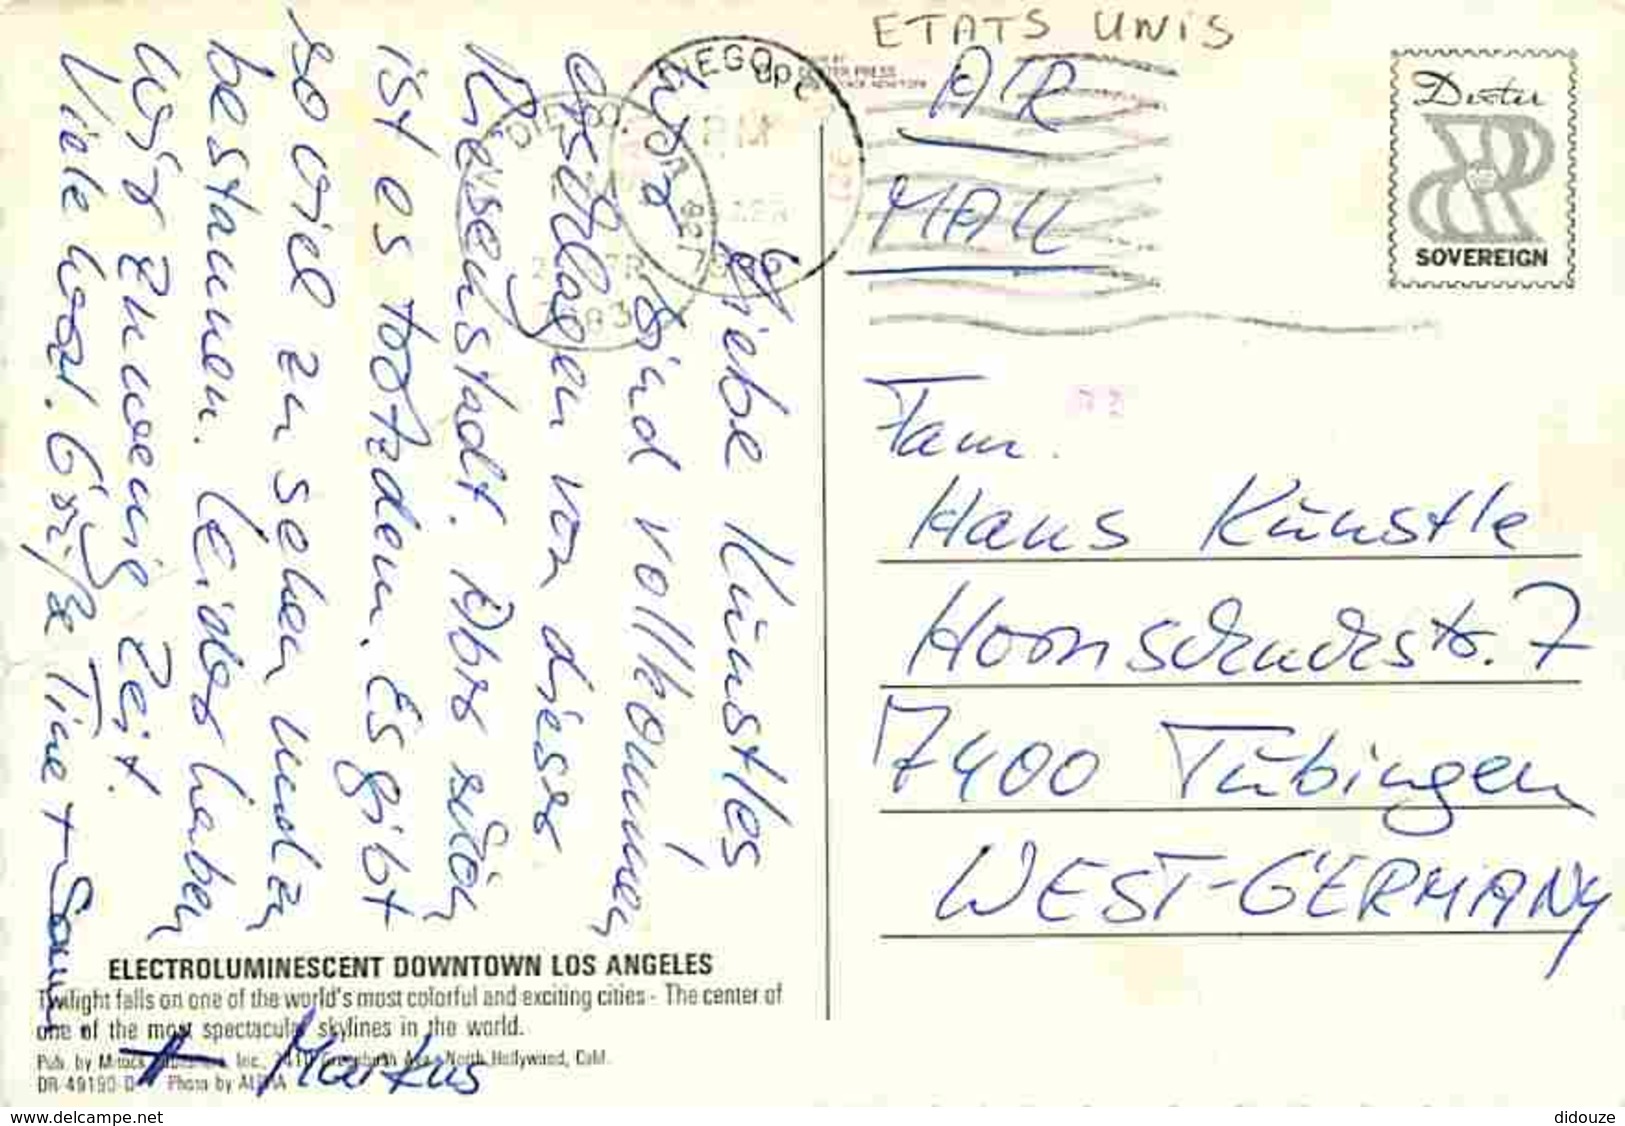 ETATS UNIS
AIR
MAIL
Dexter
SOVEREIGN
Liebe Künstles,
wir sind vollkommen
erschlagen von dieser
Riesenstadt. Aber schön
ist es trotzdem. Es gibt
so viel zu sehen und zu
bestaunen. Leider haben
wir zu wenig Zeit.
Viele liebe Grüße Tine +
+ Markus
Fam.
Hans Künstle
Hornschuchstr. 7
7400 Tübingen
WEST-GERMANY
ELECTROLUMINESCENT DOWNTOWN LOS ANGELES
Twilight falls on one of the world's most colorful and exciting cities - The center of
one of the most spectacular skylines in the world.
Pub. by Inc., North Hollywood, Calif.
DR-49190-D Photo by
www.delcampe.net
didouze